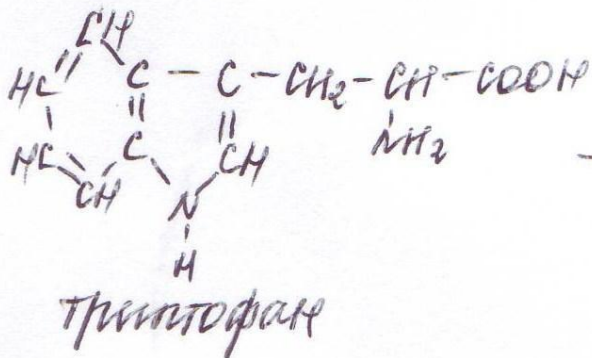 CH
HC C - C - CH2 - CH - COOH
HC C CH NH2
CH N
H
триптофан